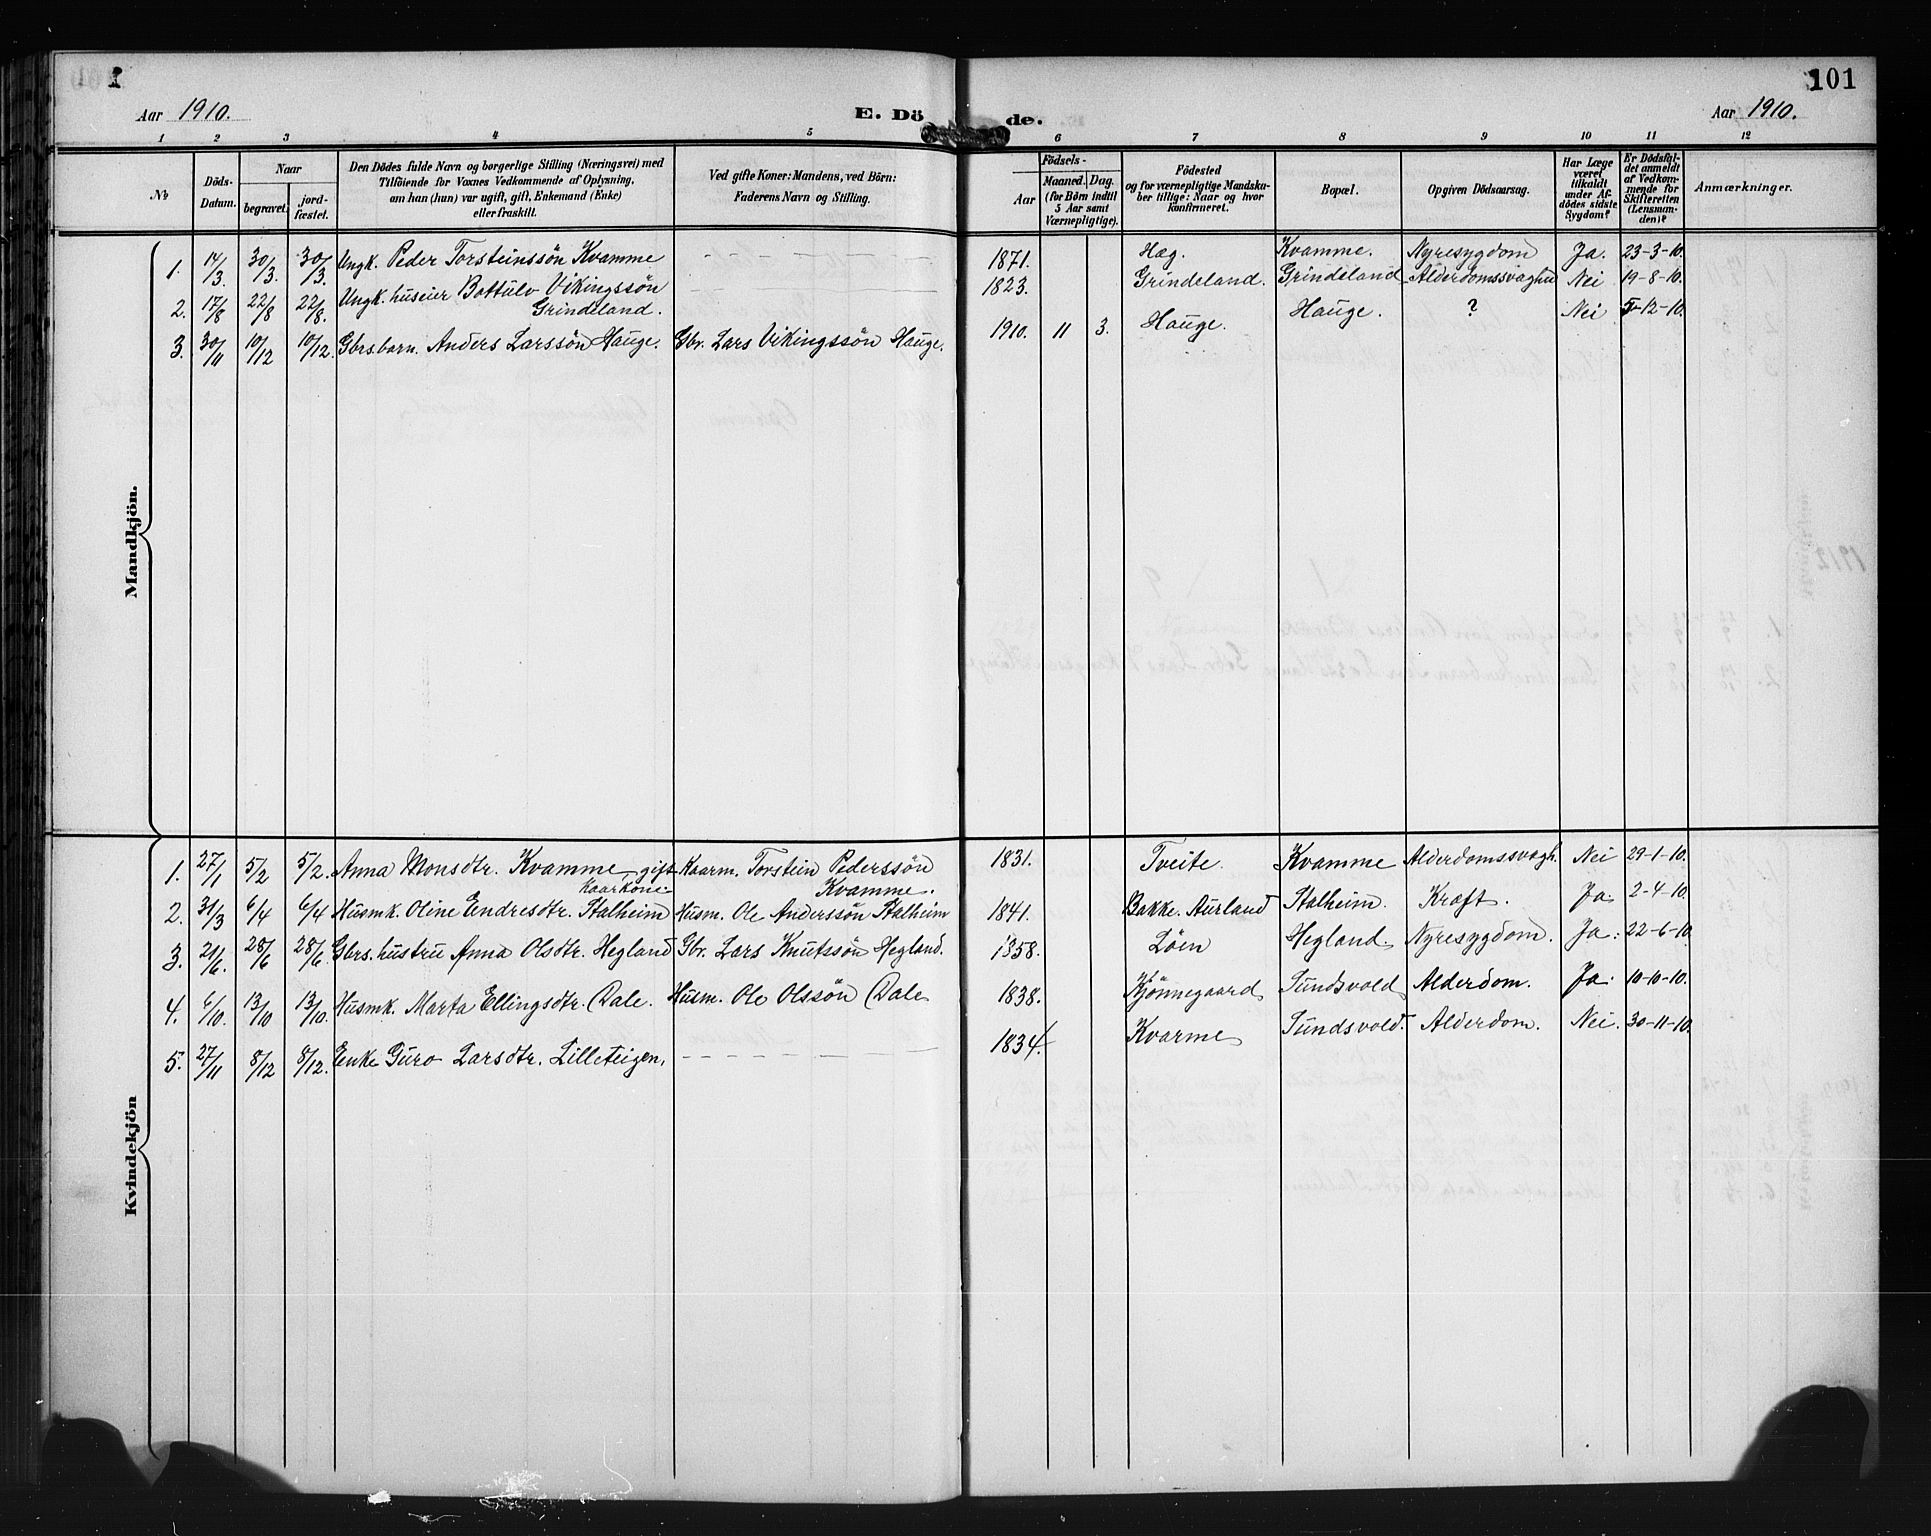 1
101
Aar 1910.
E. Dö
de.
Aar 1910.
1 2 3 4 5 6 7 8 9 10 11 12
№
Döds-
Datum.
Naar
begravet.
jord-
fæstet.
Den Dödes fulde Navn og borgerlige Stilling (Næringsvei) med
Tilföiende for Voxnes Vedkommende af Oplysning,
om han (hun) var ugift, gift, Enkemand (Enke)
eller fraskilt.
Ved gifte Koner: Mandens, ved Börn:
Faderens Navn og Stilling.
Födsels-
Aar
Maaned.
Dag.
(for Börn indtil
5 Aar samt
Værnepligtige).
Födested
og for værnepligtige Mandska-
ber tillige: Naar og hvor
konfirmeret.
Bopæl.
Opgiven Dödsaarsag.
Har Læge
været
tilkaldt
under Af-
dödes sidste
Sygdom?
Er Dödsfal-
det anmeldt
af Vedkom-
mende for
Skifteretten
(Lensman-
den)?
Anmærkninger.
Mandkjön.
1. 14/3 30/3. 30/3. Ungk. Peder Torsteinssön Kvamme — — — 1871. Hæg. Kvamme. Nyresygdom Ja. 23-3-10.
2. 17/8 22/8 22/8. Ungk. huseier Bottulv Vikingssön — — — 1823. Grindeland. Grindeland Alderdomssvaghed Nei 19-8-10.
Grindeland.
3. 30/11 10/12 10/12. Gbrs.barn. Anders Larssön Hauge. Gbr. Lars Vikingssön Hauge. 1910. 11 3. Hauge. Hauge. ? Nei 5-12-10.
Kvindekjön
1. 27/1 5/2 5/2. Anna Monsdtr. Kvamme, gift Kaarm. Torstein Pederssön 1831. Tveite. Kvamme Alderdomssvagh. Nei 29-1-10.
kaarkone. Kvamme.
2. 31/3 6/4 6/4 Husmk. Oline Endresdtr. Stalheim Husm. Ole Anderssön Stalheim 1841. Bakke. Aurland Stalheim. Kræft. Ja 2-4-10.
3. 21/6. 28/6 28/6. Gbrs. hustru Anna Olsdtr. Hegland Gbr. Lars Knutssön Hegland. 1858. Löen Hegland. Nyresygdom. Ja. 22-6-10
4. 6/10. 13/10 13/10. Husmk. Marta Ellingsdtr. Dale. Husm. Ole Olssön Dale 1838. Kjönnegaard Sundsvold Alderdom. Ja. 10-10-10.
5. 27/11 8/12 8/12. Enke Guro Larsdtr. Lilleteigen. — — — 1834. Kvarme Sundsvold. Alderdom. Nei. 30-11-10.